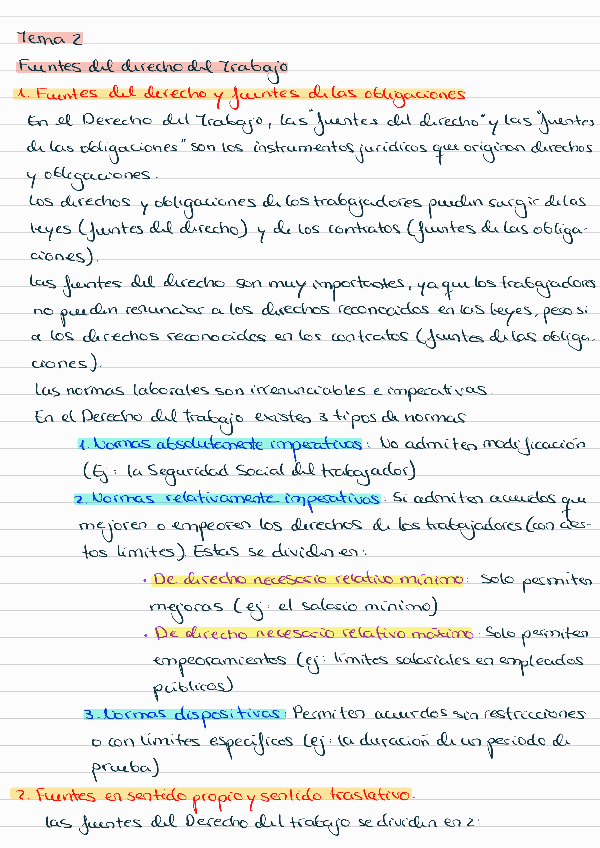 Tema 2
Fuentes del derecho del Trabajo
1. Fuentes del derecho y fuentes de las obligaciones
En el Derecho del Trabajo, las "fuentes del derecho" y las "fuentes
de las obligaciones" son los instrumentos jurídicos que originan derechos
y obligaciones.
Los derechos y obligaciones de los trabajadores pueden surgir de las
leyes (fuentes del derecho) y de los contratos (fuentes de las obliga-
ciones).
Las fuentes del derecho son muy importantes, ya que los trabajadores
no pueden renunciar a los derechos reconocidos en las leyes, pero si
a los derechos reconocidos en los contratos (fuentes de las obliga-
ciones).
Las normas laborales son irrenunciables e imperativas.
En el Derecho del trabajo existen 3 tipos de normas
1. Normas absolutamente imperativas: No admiten modificación
(Ej: la Seguridad Social del trabajador)
2. Normas relativamente imperativas: Si admiten acuerdos que
mejoren o empeoren los derechos de los trabajadores (con cier-
tos límites). Estas se dividen en:
· De derecho necesario relativo mínimo: Solo permiten
mejoras (ej: el salario mínimo)
· De derecho necesario relativo máximo: Solo permiten
empeoramientos (ej: límites salariales en empleados
públicos)
3. Normas dispositivas: Permiten acuerdos sin restricciones
o con límites específicos (ej: la duración de un periodo de
prueba)
2. Fuentes en sentido propio y sentido traslativo.
Las fuentes del Derecho del trabajo se dividen en 2: